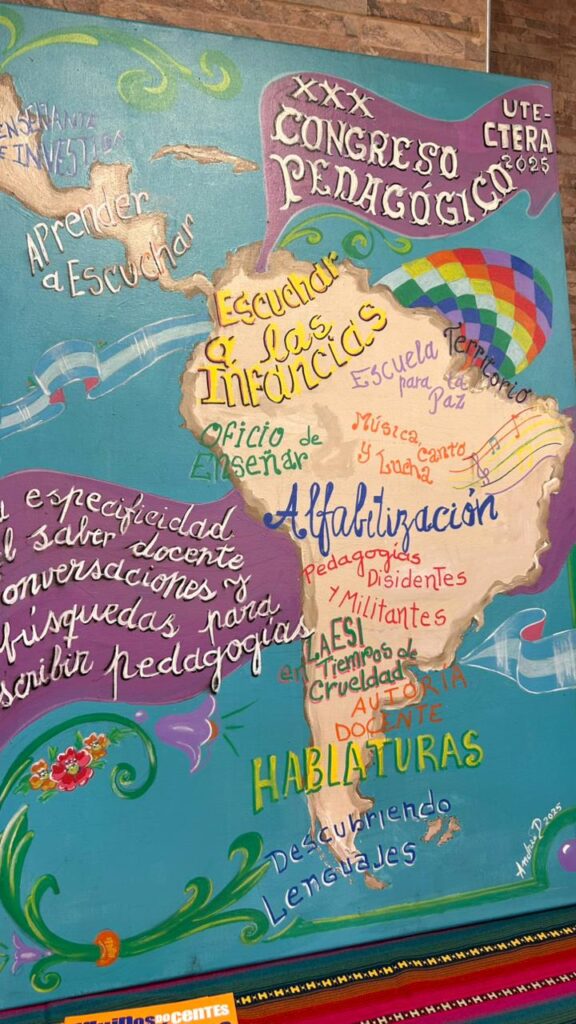 XXX
CONGRESO
PEDAGÓGICO
UTE-
CTERA
2025
ENSEÑANTE
E INVESTIGA
Aprender
a Escuchar
Escuchar
a las
Infancias
Escuela
para la
Paz
Territorio
Oficio de
Enseñar
Música, canto
y Lucha
Alfabilización
especificidad
saber docente
onversaciones y
búsquedas para
scribir pedagogías
Pedagogías
Disidentes
y Militantes
LA ESI
en Tiempos de
Crueldad
AUTORÍA
DOCENTE
HABLATURAS
Descubriendo
Lenguajes
2025
DOCENTES